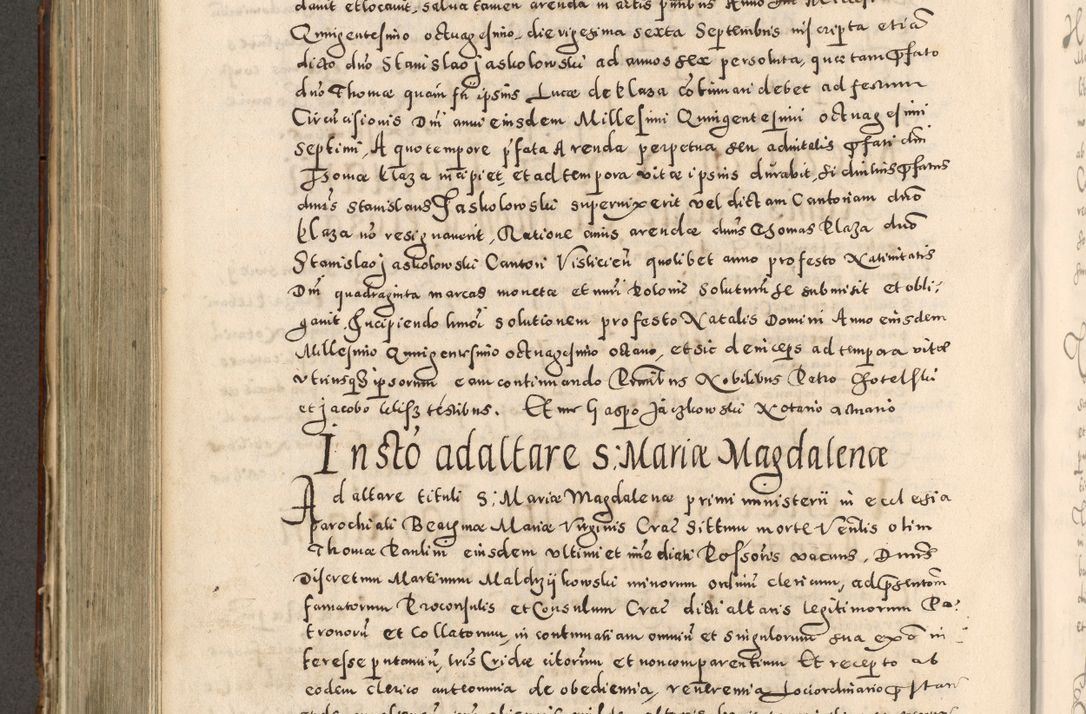 davit et locavit, salva tamen arenda in actis
Quingentesimo octuagesimo, die vigesima sexta Septembris inscripta etiã
dicto dno Stanislao Jaskolowski ad annos sex persoluta, quæ tam pfato
dno Thomæ quam ipsius Lucæ de Klaza cõtinuari debet ad festum
Circũcisionis Dni anni eiusdem Millesimi Quingentesimi octuagesimi
Septimi, A quo tempore pfata Arenda perpetua seu advitalis pfati dni
Thomæ Klaza incipiet, et ad tempora vitæ ipsius durabit, si diutius pfatus
dnus Stanislaus Jaskolowski supervixerit vel dictam Cantoriam dno
Klaza nõ resignaverit, Ratione cuius arendæ dnus Thomas Klaza dno
Stanislao Jaskolowski Cantori Visliciẽn quolibet anno pro festo Nativitatis
Dni quadraginta marcas monetæ et nũri Polonic soluturũ se submisit et obli-
gavit, Incipiendo solutionem pro festo Natalis Domini Anno eiusdem
Millesimo Quingentesimo octuagesimo octavo, et sic deinceps ad tempora vitæ
utriusq ipsorum eam continuando Pñtibus Nobilibus Petro
et Jacobo testibus. Et me Gaspo Jaczkowski Notario actuario
Instõ ad altare S: Mariæ Magdalenæ
Ad altare tituli S: Mariæ Magdalenæ primi ministerii in ecclesia
Parochiali Beatissimæ Mariæ Virginis Crac Sittum morte Venlis olim
Thomæ Paulini eiusdem ultimi et imediati Possoris vacans, Dnus
Discretum Martinum Maldrzijkowski minorum ordinũ clericum, ad psentõm
famatorum Proconsulis et Consulum Crac dicti altaris legitimorum Pa-
tronorũ et Collatorum, in contumatiam omniũ et singulorum sua exõ in-
teresse putantiũ, tris Cridæ citorum et non comparentium Et recepto ab
eodem clerico ante omnia de obedientia, reverentia Loci ordinario pstan